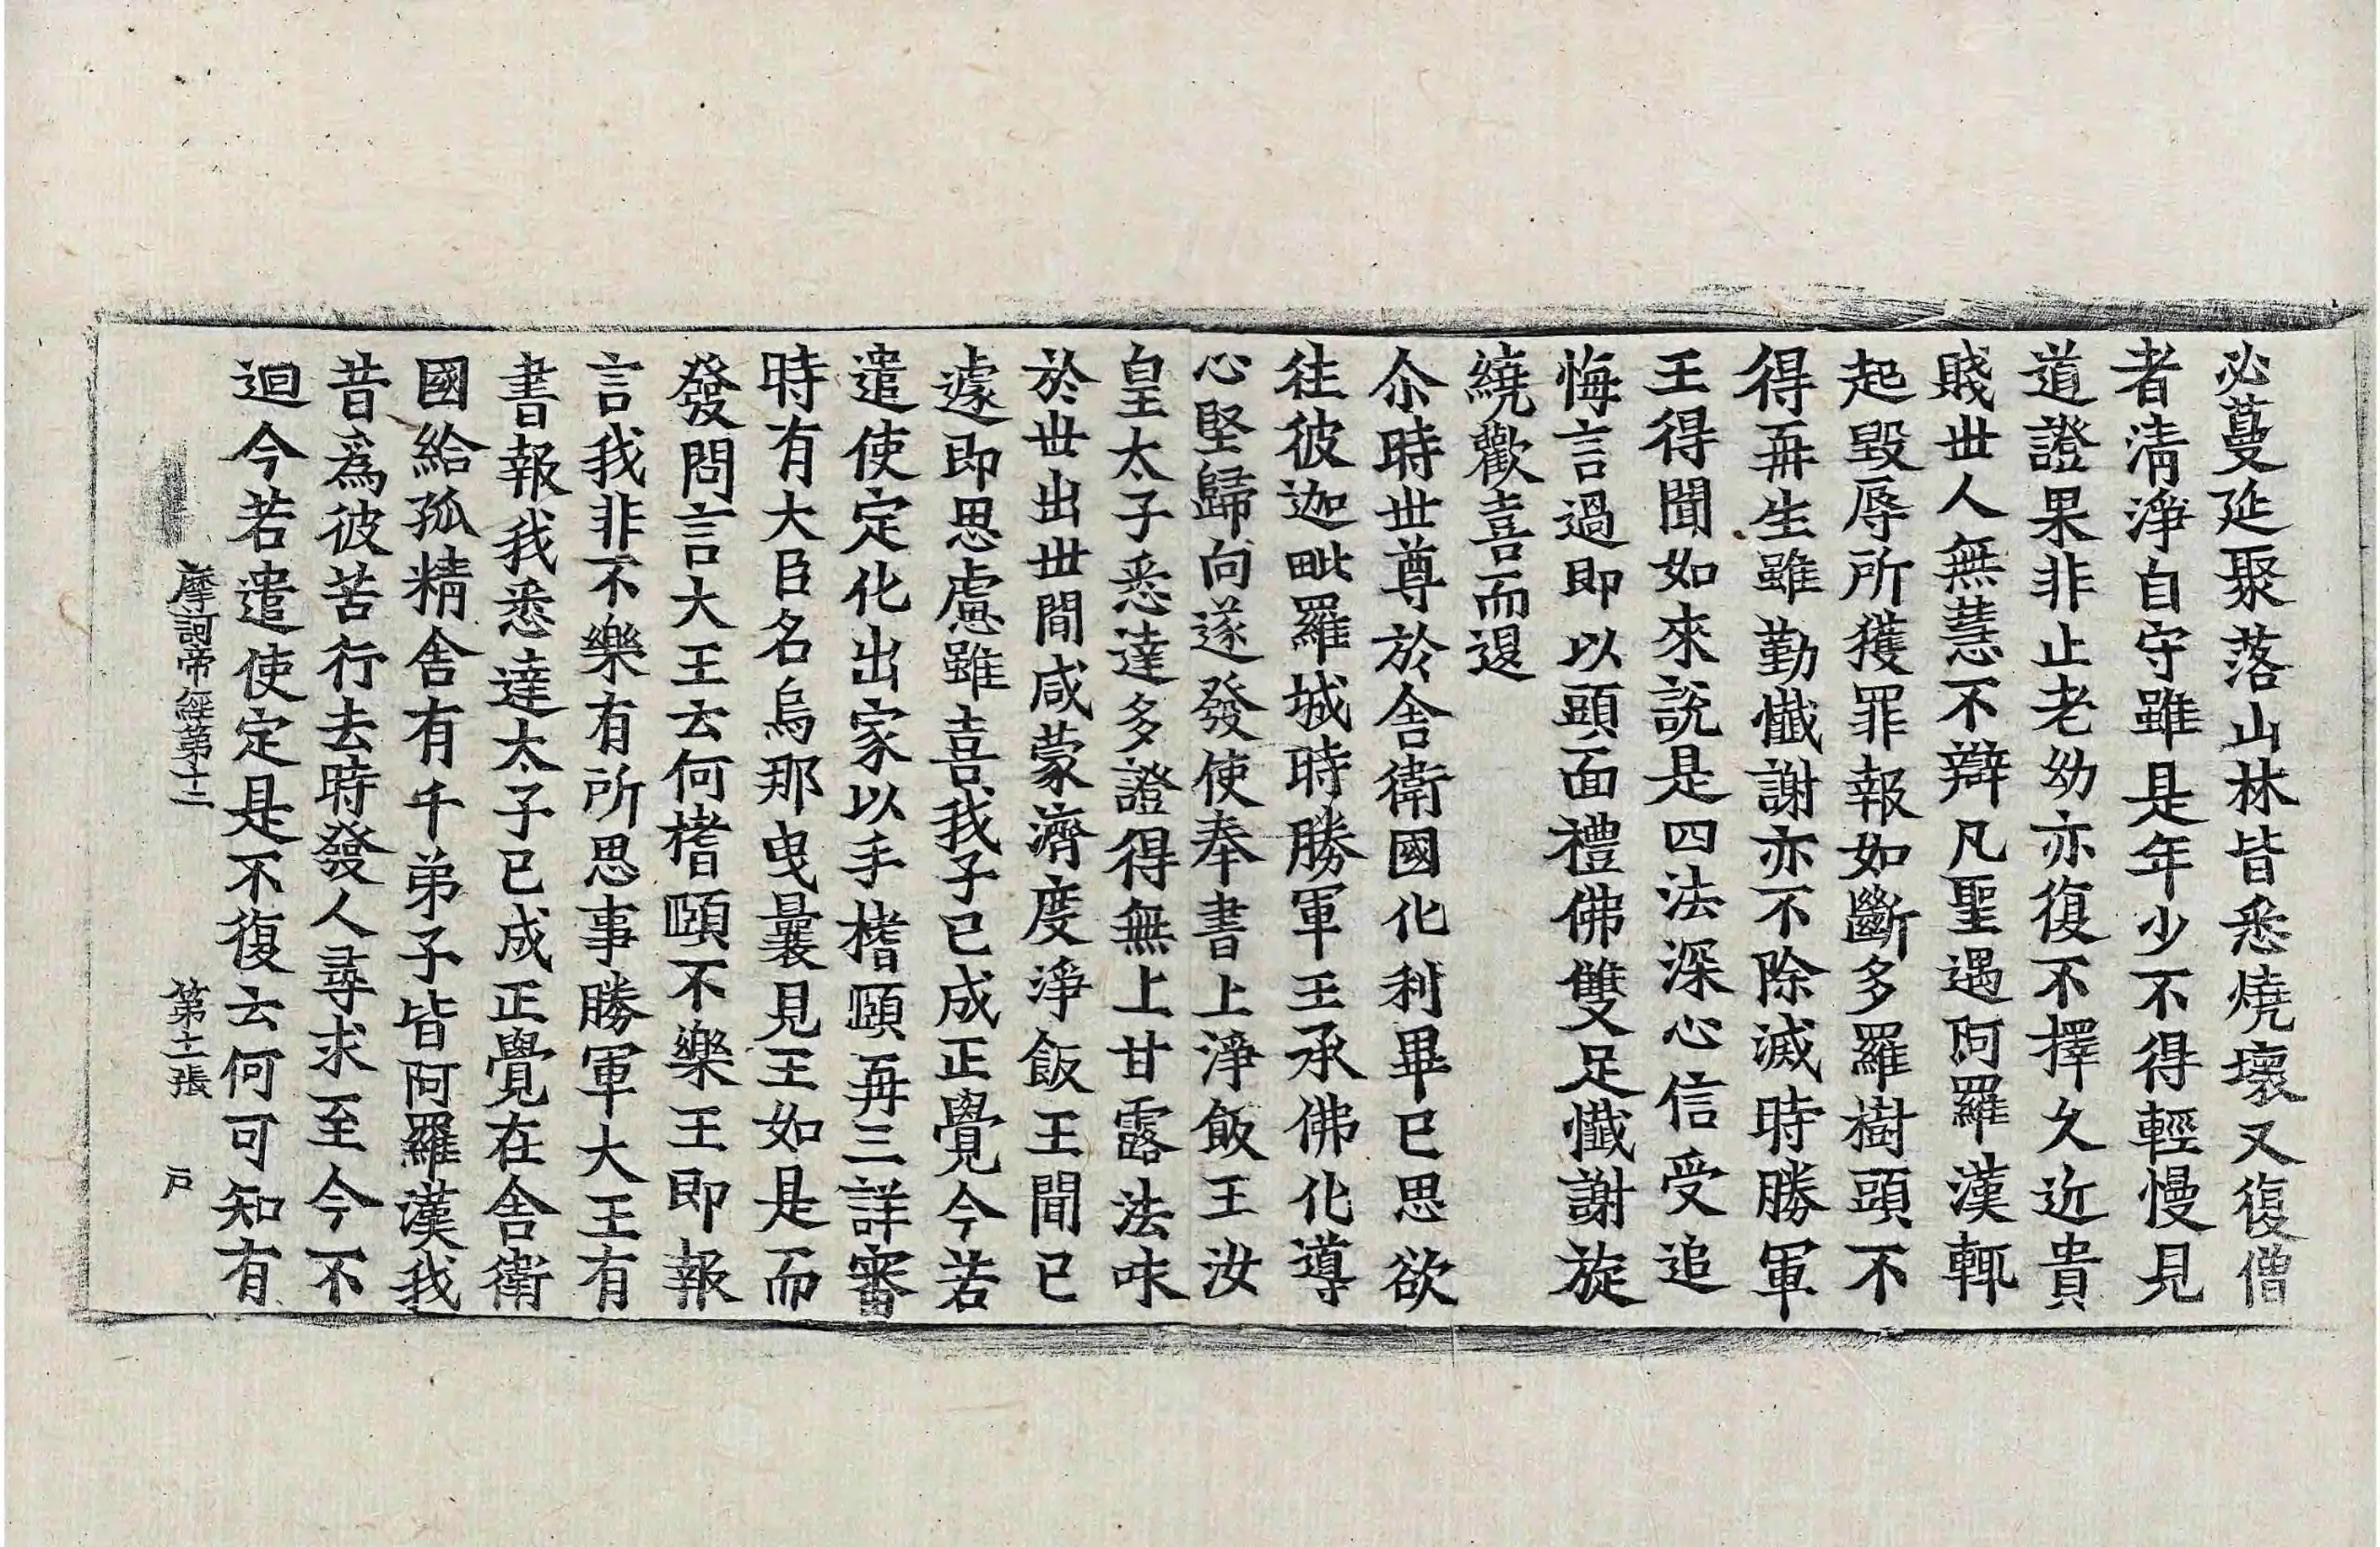 必蔓延聚落山林皆悉燒壞又復僧
者清淨自守雖是年少不得輕慢見
道證果非止老幼亦復不擇久近貴
賎丗人無慧不辯凡聖遇阿羅漢輒
起毀辱所獲罪報如斷多羅樹頭不
得再生雖勤懺謝亦不除滅時勝軍
王得聞如來說是四法深心信受追
悔言過即以頭面禮佛雙足懺謝旋
繞歡喜而退
尒時丗尊於舍衛國化利畢已思欲
往彼迦毗羅城時勝軍王承佛化導
心堅歸向遂發使奉書上淨飯王汝
皇太子悉達多證得無上甘露法味
於丗出丗間咸蒙濟度淨飯王聞已
遽即思慮雖喜我子已成正覺今若
遣使定化出家以手搘頤再三詳審
時有大臣名烏那曳曩見王如是而
發問言大王云何搘頤不樂王即報
言我非不樂有所思事勝軍大王有
書報我悉達太子已成正覺在舍衛
國給孤精舍有千弟子皆阿羅漢我
昔爲彼苦行去時發人尋求至今不
迴今若遣使定是不復云何可知有
摩訶帝經第十二　第十二張　戸